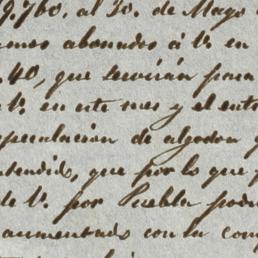 9.760. al 30. de Mayo
emos abonados á V. en
.40, que servirán para
V. en este mes y el ent
speculacion de algodon y
ntendido, que por lo que
de V. por Puebla pod
aumentado con la com